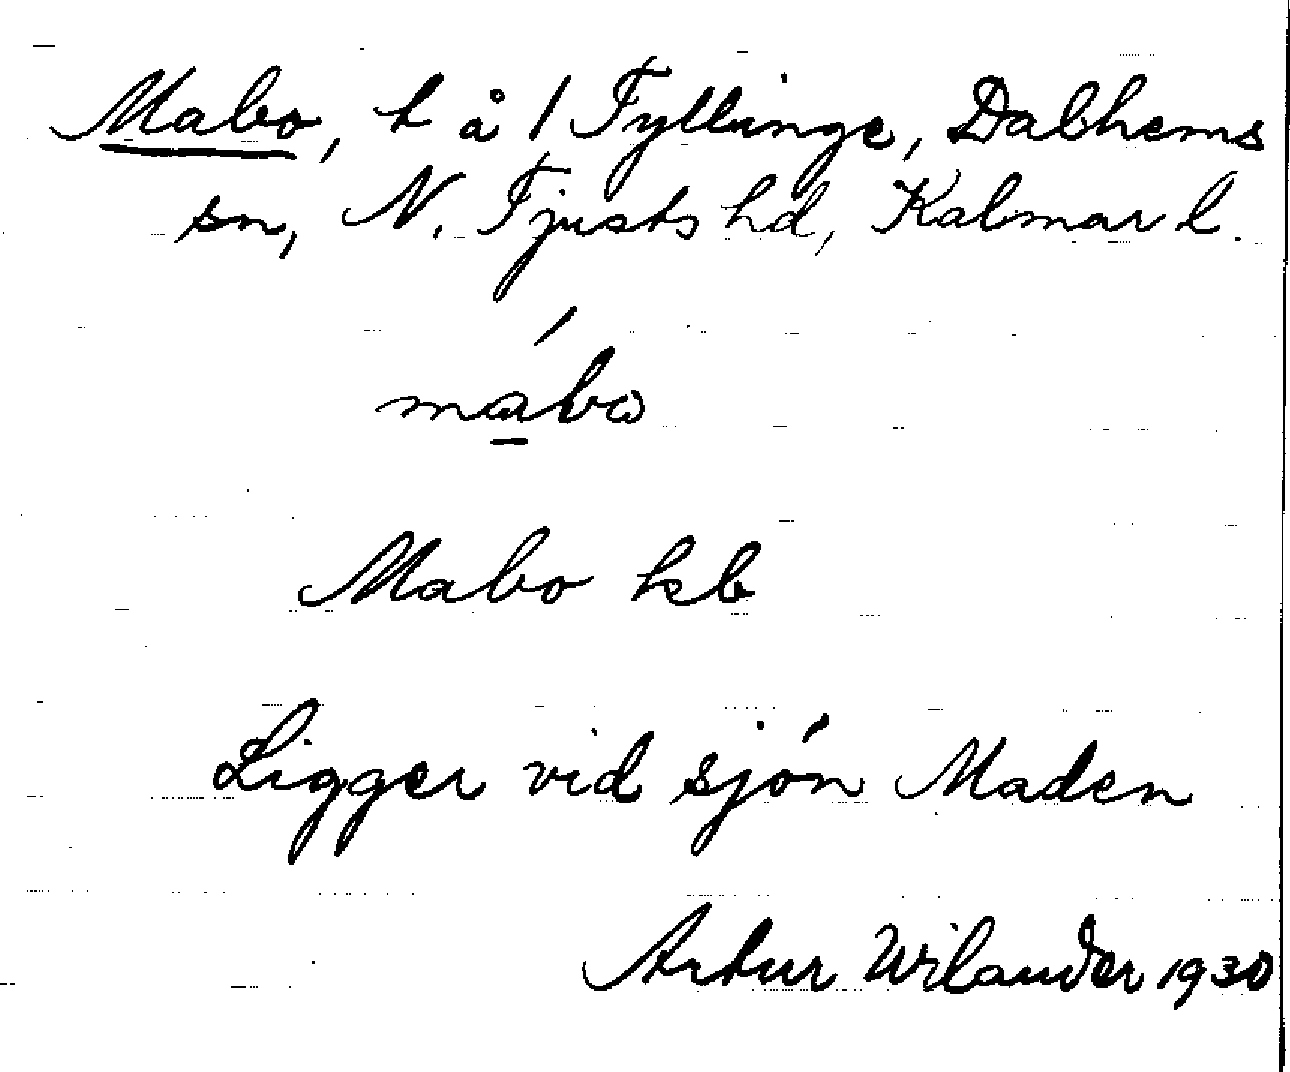 Mabo, t å 1 Fyllinge, Dalhems
sn, N. Tjusts hd, Kalmar l.
mábω
Mabo kb
Ligger vid sjön Maden
Artur Wilander 1930